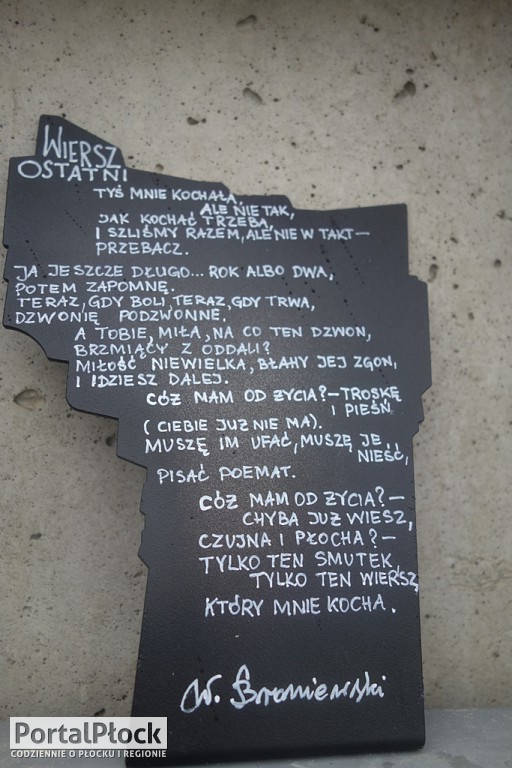 WIERSZ
OSTATNI
TYŚ MNIE KOCHAŁA,
ALE NIE TAK,
JAK KOCHAĆ TRZEBA,
I SZLIŚMY RAZEM, ALE NIE W TAKT –
PRZEBACZ.
JA JESZCZE DŁUGO... ROK ALBO DWA,
POTEM ZAPOMNĘ.
TERAZ, GDY BOLI, TERAZ, GDY TRWA,
DZWONIĘ PODZWONNE.
A TOBIE, MIŁA, NA CO TEN DZWON,
BRZMIĄCY Z ODDALI?
MIŁOŚĆ NIEWIELKA, BŁAHY JEJ ZGON,
I IDZIESZ DALEJ.
CÓŻ MAM OD ŻYCIA? – TROSKĘ
I PIEŚŃ
(CIEBIE JUŻ NIE MA).
MUSZĘ IM UFAĆ, MUSZĘ JE
NIEŚĆ,
PISAĆ POEMAT.
CÓŻ MAM OD ŻYCIA? –
CHYBA JUŻ WIESZ,
CZUJNA I PŁOCHA? –
TYLKO TEN SMUTEK,
TYLKO TEN WIERSZ,
KTÓRY MNIE KOCHA.
W. Broniewski
PortalPłock
CODZIENNIE O PŁOCKU I REGIONIE